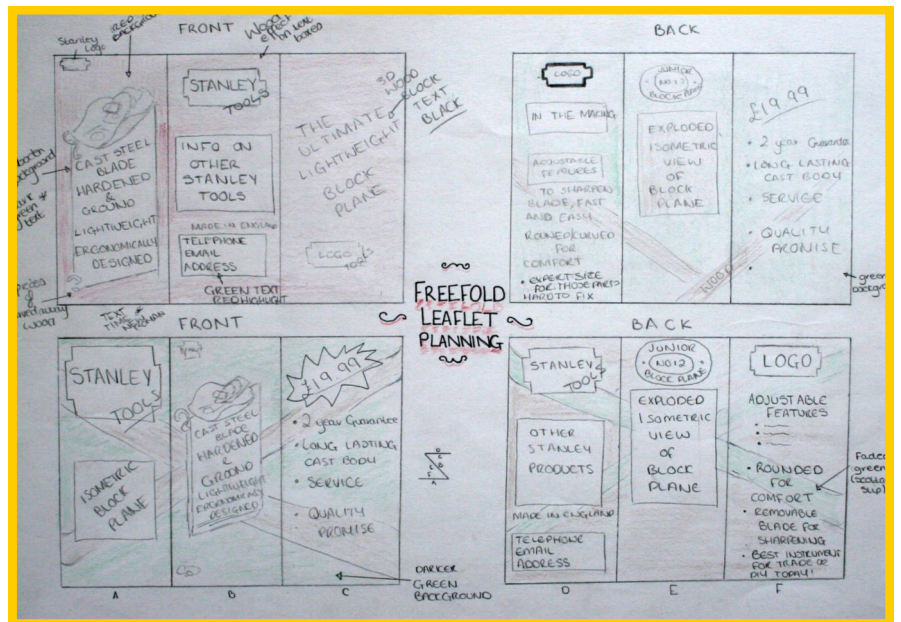 FRONT
Stanley
Logo
RED
BACKGROUND
WOOD
EFFECT
ON LEAF
BOXES
CAST STEEL
BLADE
HARDENED
&
GROUND
LIGHTWEIGHT
ERGONOMICALLY
DESIGNED
STANLEY
TOOLS
INFO ON
OTHER
STANLEY
TOOLS
MADE IN ENGLAND
TELEPHONE
EMAIL
ADDRESS
GREEN TEXT
RED HIGHLIGHT
THE
ULTIMATE
LIGHTWEIGHT
BLOCK
PLANE
3D
WOOD
BLOCK
TEXT
BLACK
LOGO
TOOLS
BACK
LOGO
IN THE MAKING
ADJUSTABLE
FEATURES
TO SHARPEN
BLADE, FAST
AND EASY
ROUNED/CURVED
FOR
COMFORT
• EXPERT SIZE
FOR THOSE PARTS
HARD TO FIX
JUNIOR
NO12
BLOCK PLANE
EXPLODED
ISOMETRIC
VIEW
OF
BLOCK
PLANE
WOOD
£19.99
• 2 year Guarantee
• LONG LASTING
CAST BODY
• SERVICE
• QUALITY
PROMISE
•
green
FREEFOLD
LEAFLET
PLANNING
FRONT
TEXT
TIMES
STANLEY
TOOLS
ISOMETRIC
BLOCK
PLANE
CAST STEEL
BLADE
HARDENED
&
GROUND
LIGHTWEIGHT
ERGONOMICALLY
DESIGNED
£19.99
• 2 year Guarantee
• LONG LASTING
CAST BODY
• SERVICE
• QUALITY
PROMISE
A
B
C
DARKER
GREEN
BACKGROUND
BACK
STANLEY
TOOLS
OTHER
STANLEY
PRODUCTS
MADE IN ENGLAND
TELEPHONE
EMAIL
ADDRESS
JUNIOR
NO12
BLOCK PLANE
EXPLODED
ISOMETRIC
VIEW
OF
BLOCK
PLANE
LOGO
ADJUSTABLE
FEATURES
• ROUNDED
FOR
COMFORT
• REMOVABLE
BLADE FOR
SHARPENING
• BEST INSTRUMENT
FOR TRADE OR
DIY TODAY!
D
E
F
green